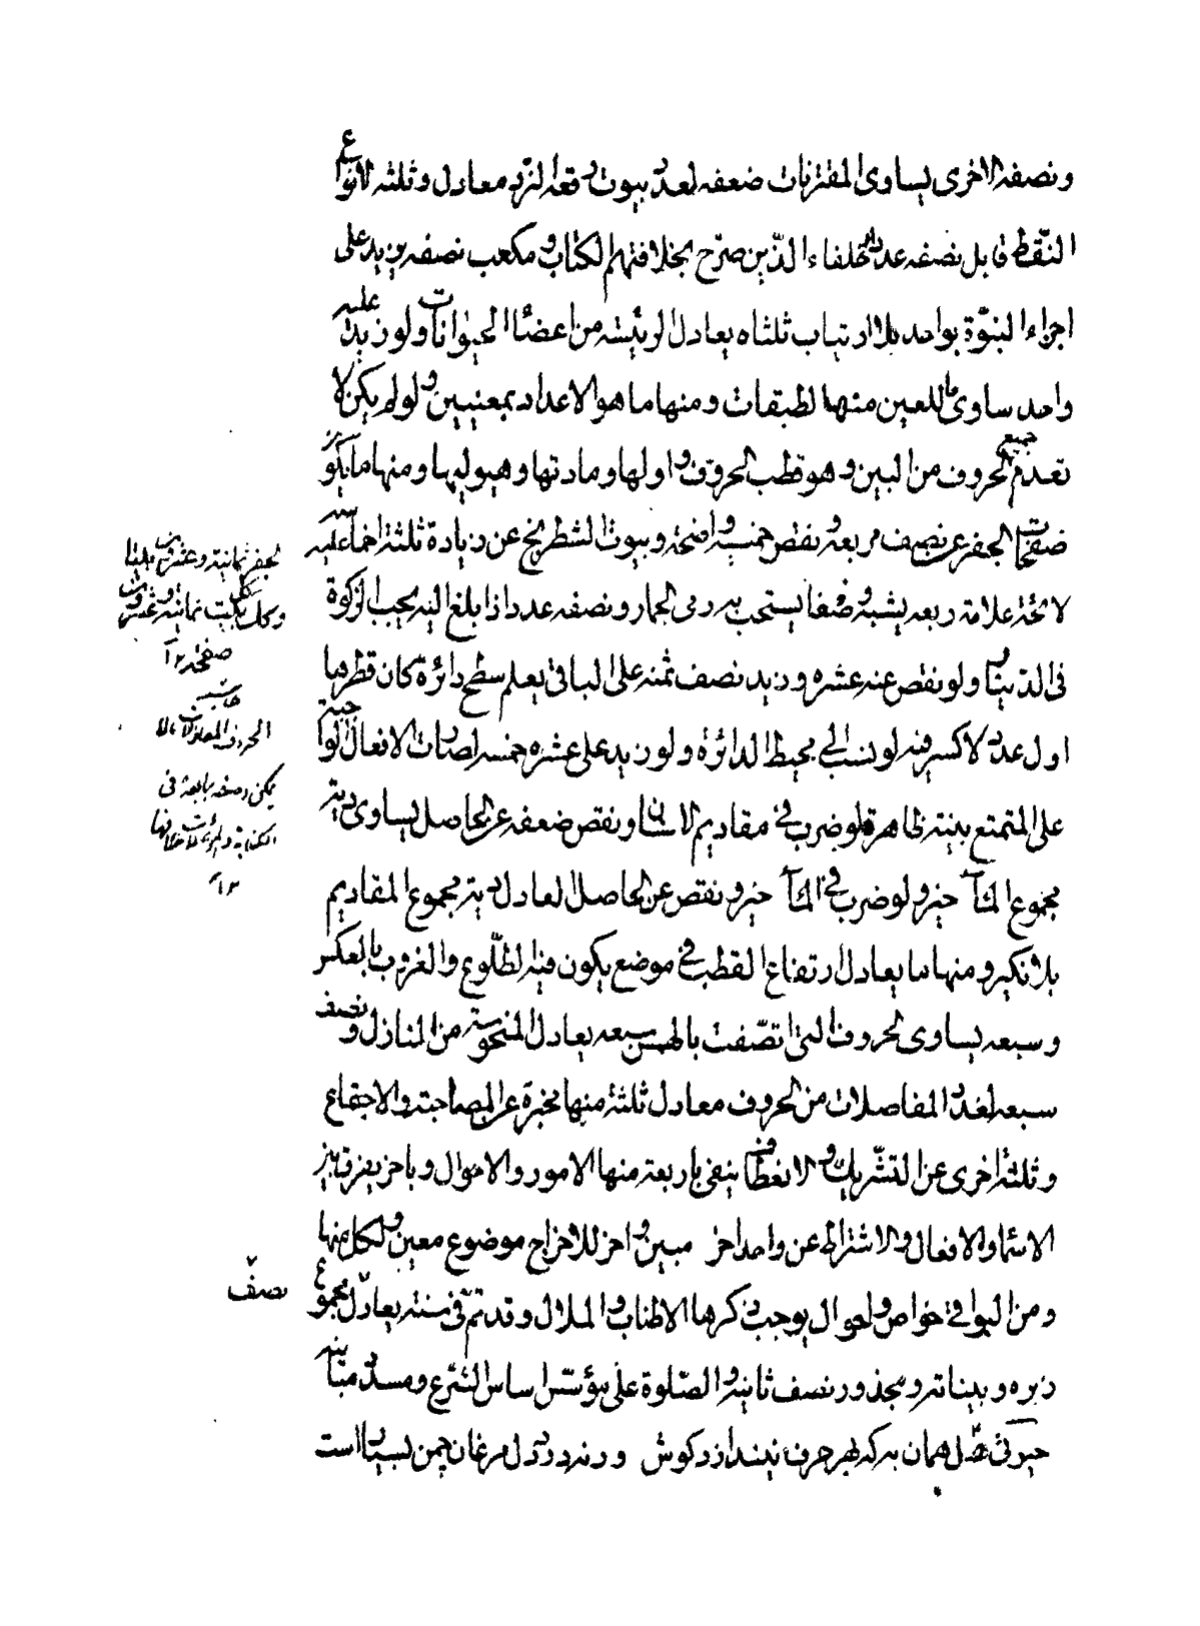 ونصفه الاخرى يساوى المقترنات ضعفه لعدد بيوت رقعة النرد معادل وثلثه لانواع
النقط قابل نصفه عدد الخلفاء الذين صرّح بخلافتهم الكتاب ومكعب نصفه يزيد على
اجزاء النبوّة بواحد بلا ارتياب ثلثاه يعادل الرئيسة من اعضاء الحيوانات ولو زيد عليه
واحد ساوى ما للعين منها الطبقات ومنها ما هو الاعداد بمعنيين ولو لم يكن لا
تعدم جميع الحروف من البين وهو قطب الحروف واولها ومادتها وهيولیها ومنها ما يكون
صفحات الجفر عن نصف مربعه ونقص خمسه واضحة وبيوت الشطرنج عن زيادة ثلثة اخماسه عليه
لائحة علامة ربعه يشبه وضعفا يستحب به رمى الجمار ونصفه عدد اذا بلغ اليه يجب الزكوة
فى الدينار ولو نقص عنه عشره وزيد نصف ثمنه على الباقى يعلم سطح دائرة كان قطرها
اول عدد لا كسر فيه لو نسب الى محيط الدائرة ولو زيد على عشره خمسه لصارت الافعال الواجبة
على المتمتع بينة ظاهرة ولو ضرب فى مقاديم الاسنان ونقص ضعفه عن الحاصل يساوى دية
مجموع المآخير ولو ضرب فى المآخير ونقص عن الحاصل لعادل دية مجموع المقاديم
بلا نكير ومنها ما يعادل ارتفاع القطب فى موضع يكون فيه الطلوع والغروب بالعكس
وسبعه يساوى الحروف التى اتصفت بالهمس سبعه يعادل المنحوسة من المنازل ونصف
سبعه لعدد المفاصلات من الحروف معادل ثلثة منها مخبرة عن المصاحبة والاجتماع
وثلثة اخرى عن التشريك والانعطاف ينفى باربعة منها الامور والاحوال وباخر يفرق بين
الاسماء والافعال والاشتراك عن واحد اخر مبين واخر للاخراج موضوع معين ولكل منها
ومن البواقى خواص واحوال يوجب ذكرها الاطناب والملال وقد تمّ فى سنة يعادل مجموع
زبره وبيناته ومجذور نصف ثانيه والصلوة على مؤسّس اساس الشرع ومسدد مبانيه
حيوتى
همان به که بهر حرف نیندازد کوش ورنه در دل مرغان چمن بسیار است
الجفر ثمانية وعشرون
وكل بيت ثمانية وعشرون
صفحة ١٢
حاشيه
الحروف
يمكن
١٢
نصف